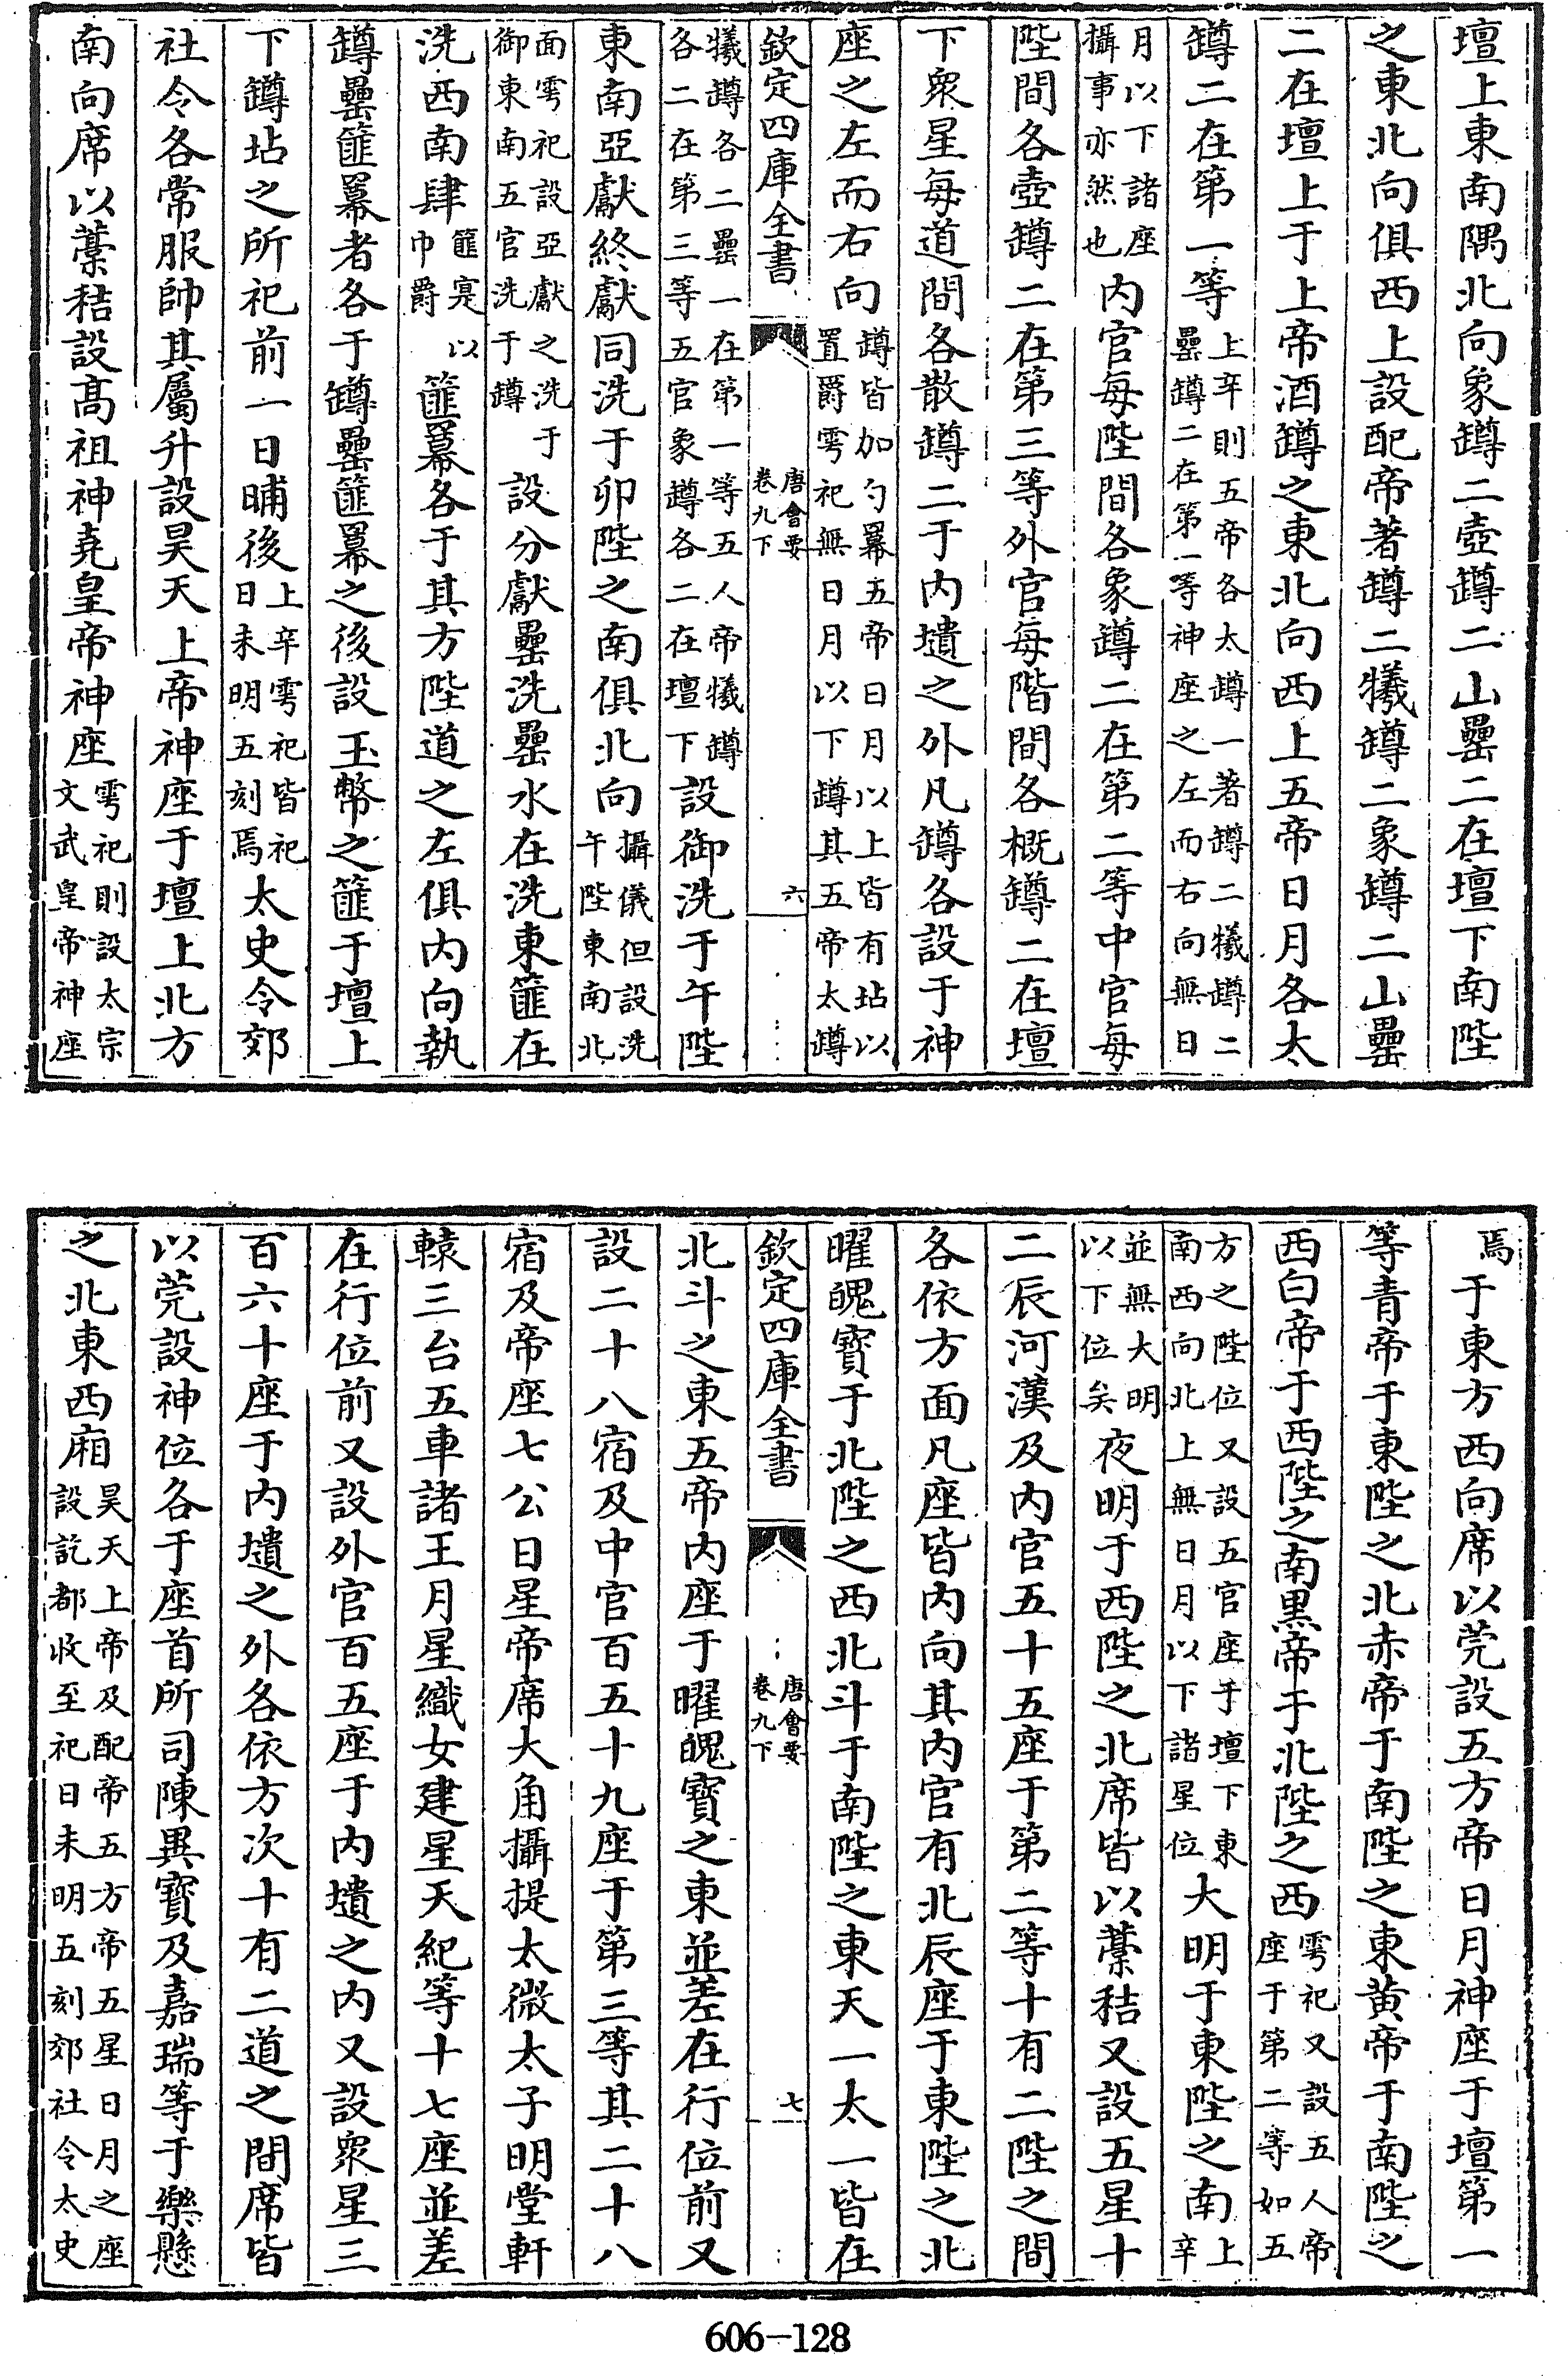 壇上東南隅北向象罇二壺罇二山罍二在壇下南陛
之東北向俱西上設配帝著罇二犧罇二象罇二山罍
二在壇上于上帝酒罇之東北向西上五帝日月各太
罇二在第一等上辛則五帝各太罇一著罇二犧罇二罍罇二在第一等神座之左而右向無日
月以下諸座攝事亦然也內官每陛間各象罇二在第二等中官每
陛間各壺罇二在第三等外官每階間各概罇二在壇
下衆星每道間各散罇二于內壝之外凡罇各設于神
座之左而右向罇皆加勺羃五帝日月以上皆有坫以置爵雩祀無日月以下罇其五帝太罇
欽定四庫全書 唐會要 卷九下 六
犧罇各二罍一在第一等五人帝犧罇各二在第三等五官象罇各二在壇下設御洗于午陛
東南亞獻終獻同洗于卯陛之南俱北向攝儀但設洗午陛東南北
面雩祀設亞獻之洗于御東南五官洗于罇設分獻罍洗罍水在洗東篚在
洗西南肆篚寔以巾爵篚羃各于其方陛道之左俱內向執
罇罍篚羃者各于罇罍篚羃之後設玉幣之篚于壇上
下罇坫之所祀前一日晡後上辛雩祀皆祀日未明五刻焉太史令郊
社令各常服帥其屬升設昊天上帝神座于壇上北方
南向席以藁秸設高祖神堯皇帝神座雩祀則設太宗文武皇帝神座
焉于東方西向席以莞設五方帝日月神座于壇第一
等青帝于東陛之北赤帝于南陛之東黃帝于南陛之
西白帝于西陛之南黑帝于北陛之西雩祀又設五人帝座于第二等如五
方之陛位又設五官座于壇下東南西向北上無日月以下諸星位大明于東陛之南上辛
並無大明以下位矣夜明于西陛之北席皆以藁秸又設五星十
二辰河漢及內官五十五座于第二等十有二陛之間
各依方面凡座皆內向其內官有北辰座于東陛之北
曜魄寶于北陛之西北斗于南陛之東天一太一皆在
欽定四庫全書 唐會要 卷九下 七
北斗之東五帝內座于曜魄寶之東並差在行位前又
設二十八宿及中官百五十九座于第三等其二十八
宿及帝座七公日星帝席大角攝提太微太子明堂軒
轅三台五車諸王月星織女建星天紀等十七座並差
在行位前又設外官百五座于內壝之內又設衆星三
百六十座于內壝之外各依方次十有二道之間席皆
以莞設神位各于座首所司陳異寶及嘉瑞等于樂懸
之北東西廂昊天上帝及配帝五方帝五星日月之座設訖都收至祀日未明五刻郊社令太史
606-128